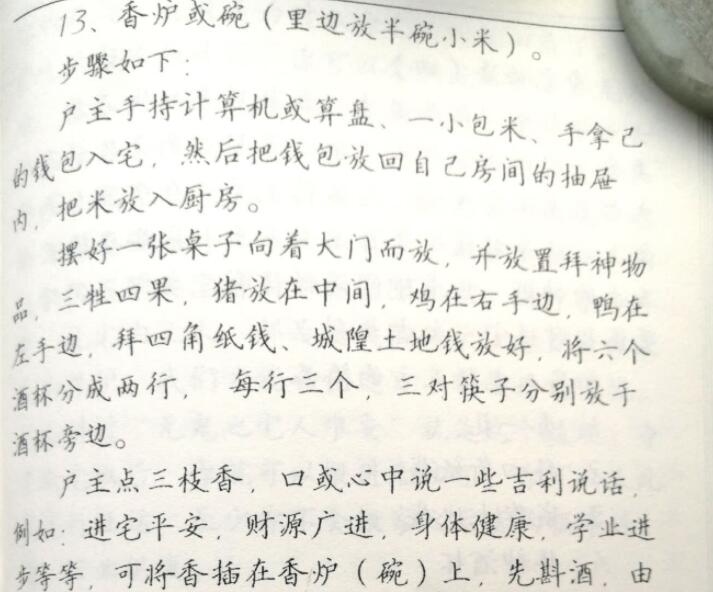 13、香炉或碗（里边放半碗小米）。
步骤如下：
户主手持计算机或算盘、一小包米、手拿己
的钱包入宅，然后把钱包放回自己房间的抽屉
内，把米放入厨房。
摆好一张桌子向着大门而放，并放置拜神物
品，三牲四果，猪放在中间，鸡在右手边，鸭在
左手边，拜四角纸钱、城隍土地钱放好，将六个
酒杯分成两行，每行三个，三对筷子分别放于
酒杯旁边。
户主点三枝香，口或心中说一些吉利说话，
例如：进宅平安，财源广进，身体健康，学业进
步等等，可将香插在香炉（碗）上，先斟酒，由